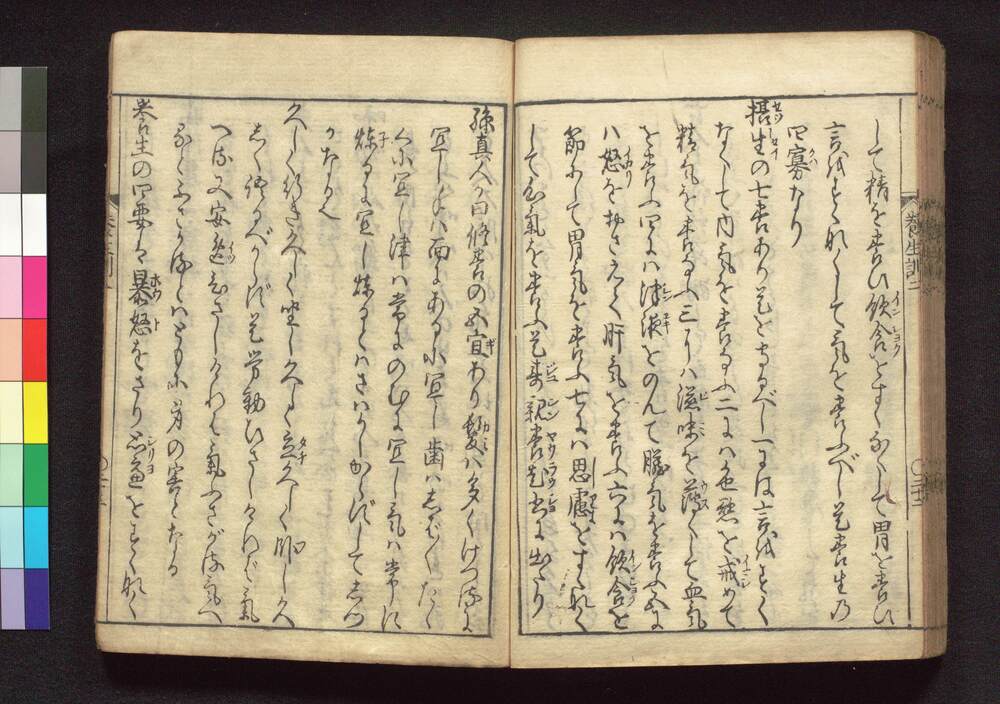 して精を養ひ飲食をすくなくして胃を養ひ
言語をすくなくして気を養ふべし是養生の
四寡なり
摂生の七養あり是を守るべし一には言をすく
なくして内気を養ふ二には色慾を戒めて
精気を養ふ三には滋味を薄くして血気
を養ふ四には津液をのんで臓気を養ふ五に
ハ怒をおさえて肝気を養ふ六には飲食を
節にして胃気を養ふ七には思慮をすくなく
して心氣を養ふ是寿親養老書に出たり
孫真人が曰修養の五宜あり髪ハ多くけづるに
宜し手ハ面にあるに宜し歯ハしばしばたゝ
くに宜し津ハ常にのむに宜し気ハ常に
煉るに宜し煉るとハさハがしからずしてしづ
かなる也
久しく行き久しく坐し久しく立久しく臥し久
しく語るべからず是労動ひさしければ氣
へる又安逸ひさしければ氣ふさがる気へ
るとふさがるとハともに身の害となる
養生の四要ハ暴怒をさり思慮をすくなく
養生訓二